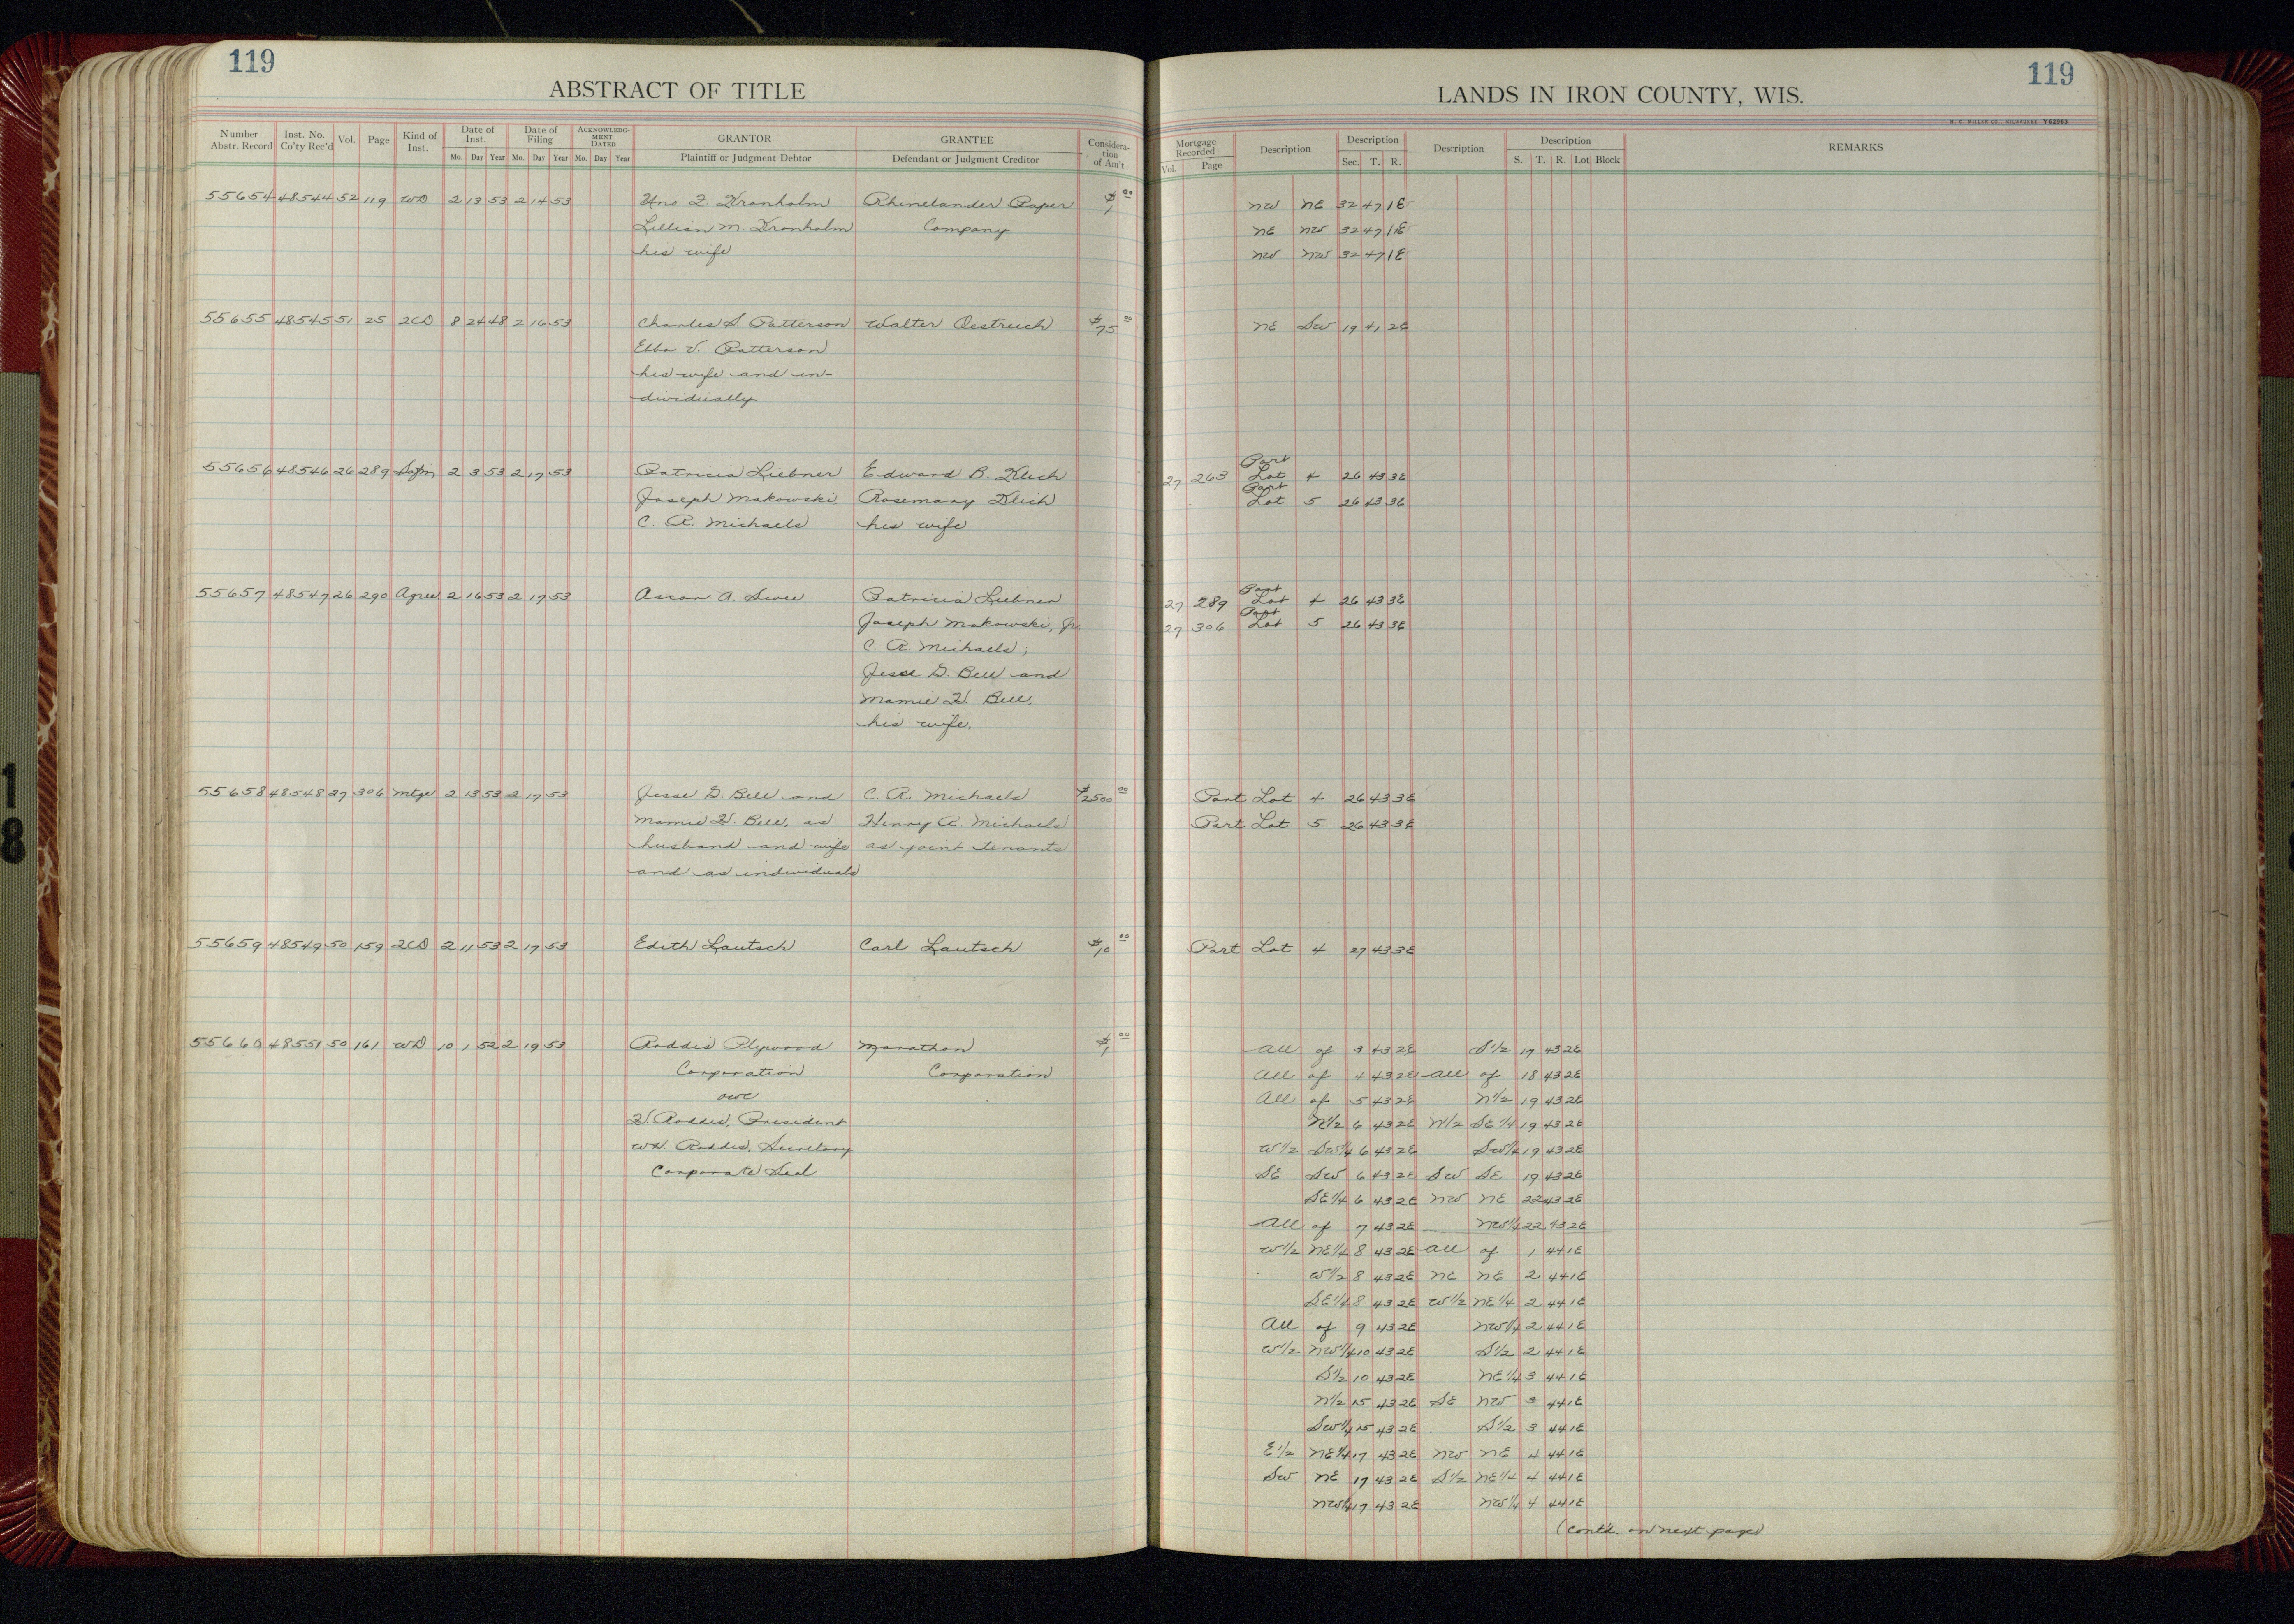 119
ABSTRACT OF TITLE
Number Abstr. Record | Inst. No. Co'ty Rec'd | Vol. | Page | Kind of Inst. | Date of Inst. Mo. Day Year | Date of Filing Mo. Day Year | ACKNOWLEDGMENT DATED Mo. Day Year | GRANTOR Plaintiff or Judgment Debtor | GRANTEE Defendant or Judgment Creditor | Consideration of Am't
55654 48544 52 119 WD 2 13 53 2 14 53 Uno Z. Kronholm Rhinelander Paper $1 00
Lillian M. Kronholm Company
his wife
55655 48545 51 25 2CD 8 24 48 2 16 53 Charles S Patterson Walter Oestreich $75 00
Ebba V. Patterson
his wife and in-
dividually
55656 48546 26 289 Satfn 2 3 53 2 17 53 Patricia Liebner Edward B. Klich
Joseph Makowski, Rosemary Klich
C. A. Michaels his wife
55657 48547 26 290 Agree 2 16 53 2 17 53 Ascar A. Patricia Liebner
Joseph Makowski, Jr.
C. A. Michaels;
Jesse G. Bell and
Mamie H. Bell,
his wife.
55658 48548 27 306 Mtge 2 13 53 2 17 53 Jesse G. Bell and C. A. Michaels $2500 00
Mamie H. Bell, as Henry A. Michaels
husband and wife as joint tenants
and as individuals
55659 48549 50 159 2CD 2 11 53 2 17 53 Edith Lautsch Carl Lautsch $10 00
55660 48551 50 161 WD 10 1 52 2 19 53 Roddis Plywood Marathon $1 00
Corporation Corporation
H Roddis, President
WH. Roddis, Secretary
Corporate Seal
119
LANDS IN IRON COUNTY, WIS.
H. C. MILLER CO., MILWAUKEE Y62063
Mortgage Recorded Vol. Page | Description | Description Sec. T. R. | Description | Description S. T. R. Lot Block | REMARKS
NW NE 32 47 1E
NE NW 32 47 1E
NW NW 32 47 1E
NE SW 19 41 2E
Part
27 263 Lot 4 26 43 3E
Part
Lot 5 26 43 3E
Part
27 289 Lot 4 26 43 3E
Part
27 306 Lot 5 26 43 3E
Part Lot 4 26 43 3E
Part Lot 5 26 43 3E
Part Lot 4 27 43 3E
All of 3 43 2E S1/2 17 43 2E
All of 4 43 2E All of 18 43 2E
All of 5 43 2E N1/2 19 43 2E
N1/2 6 43 2E N1/2 SE1/4 19 43 2E
W1/2 SW1/4 6 43 2E SW1/4 19 43 2E
SE SW 6 43 2E SW SE 19 43 2E
SE1/4 6 43 2E NW NE 22 43 2E
All of 7 43 2E NW1/4 22 43 2E
W1/2 NE1/4 8 43 2E All of 1 44 1E
W1/2 8 43 2E NE NE 2 44 1E
SE1/4 8 43 2E W1/2 NE1/4 2 44 1E
All of 9 43 2E NW1/4 2 44 1E
W1/2 NW1/4 10 43 2E S1/2 2 44 1E
S1/2 10 43 2E NE1/4 3 44 1E
N1/2 15 43 2E SE NW 3 44 1E
SW1/4 15 43 2E S1/2 3 44 1E
E1/2 NE1/4 17 43 2E NW NE 4 44 1E
SW NE 17 43 2E S1/2 NE1/4 4 44 1E
NW1/4 17 43 2E NW1/4 4 44 1E
(Cont'd. on next page)
1
8